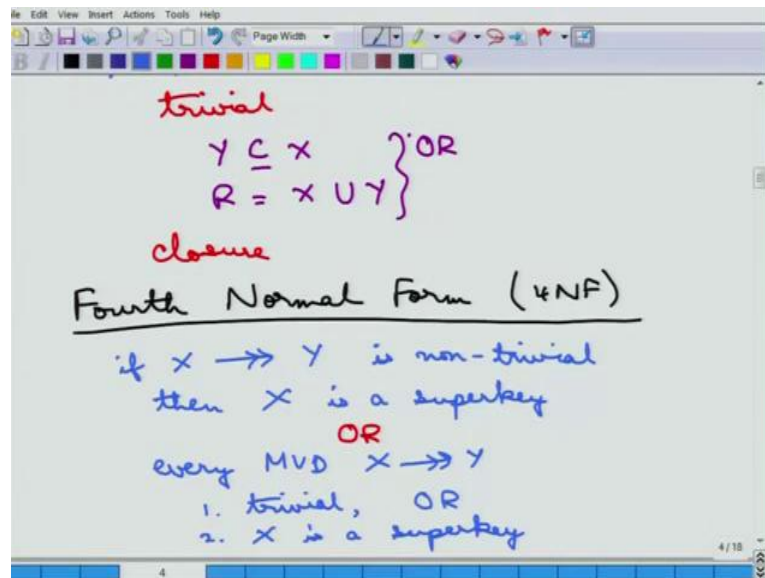 le Edit View Insert Actions Tools Help
Page Width
B I
trivial
Y ⊆ X } OR
R = X ∪ Y
closure
Fourth Normal Form (4NF)
if X →→ Y is non-trivial
then X is a superkey
OR
every MVD X →→ Y
1. trivial, OR
2. X is a superkey
4/18
4